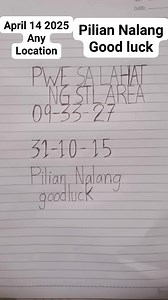 April 14 2025
Any
Location
Pilian Nalang
Good luck
PWE SA LAHAT
NG STL AREA
09-33-27
31-10-15
Pilian Nalang
goodluck